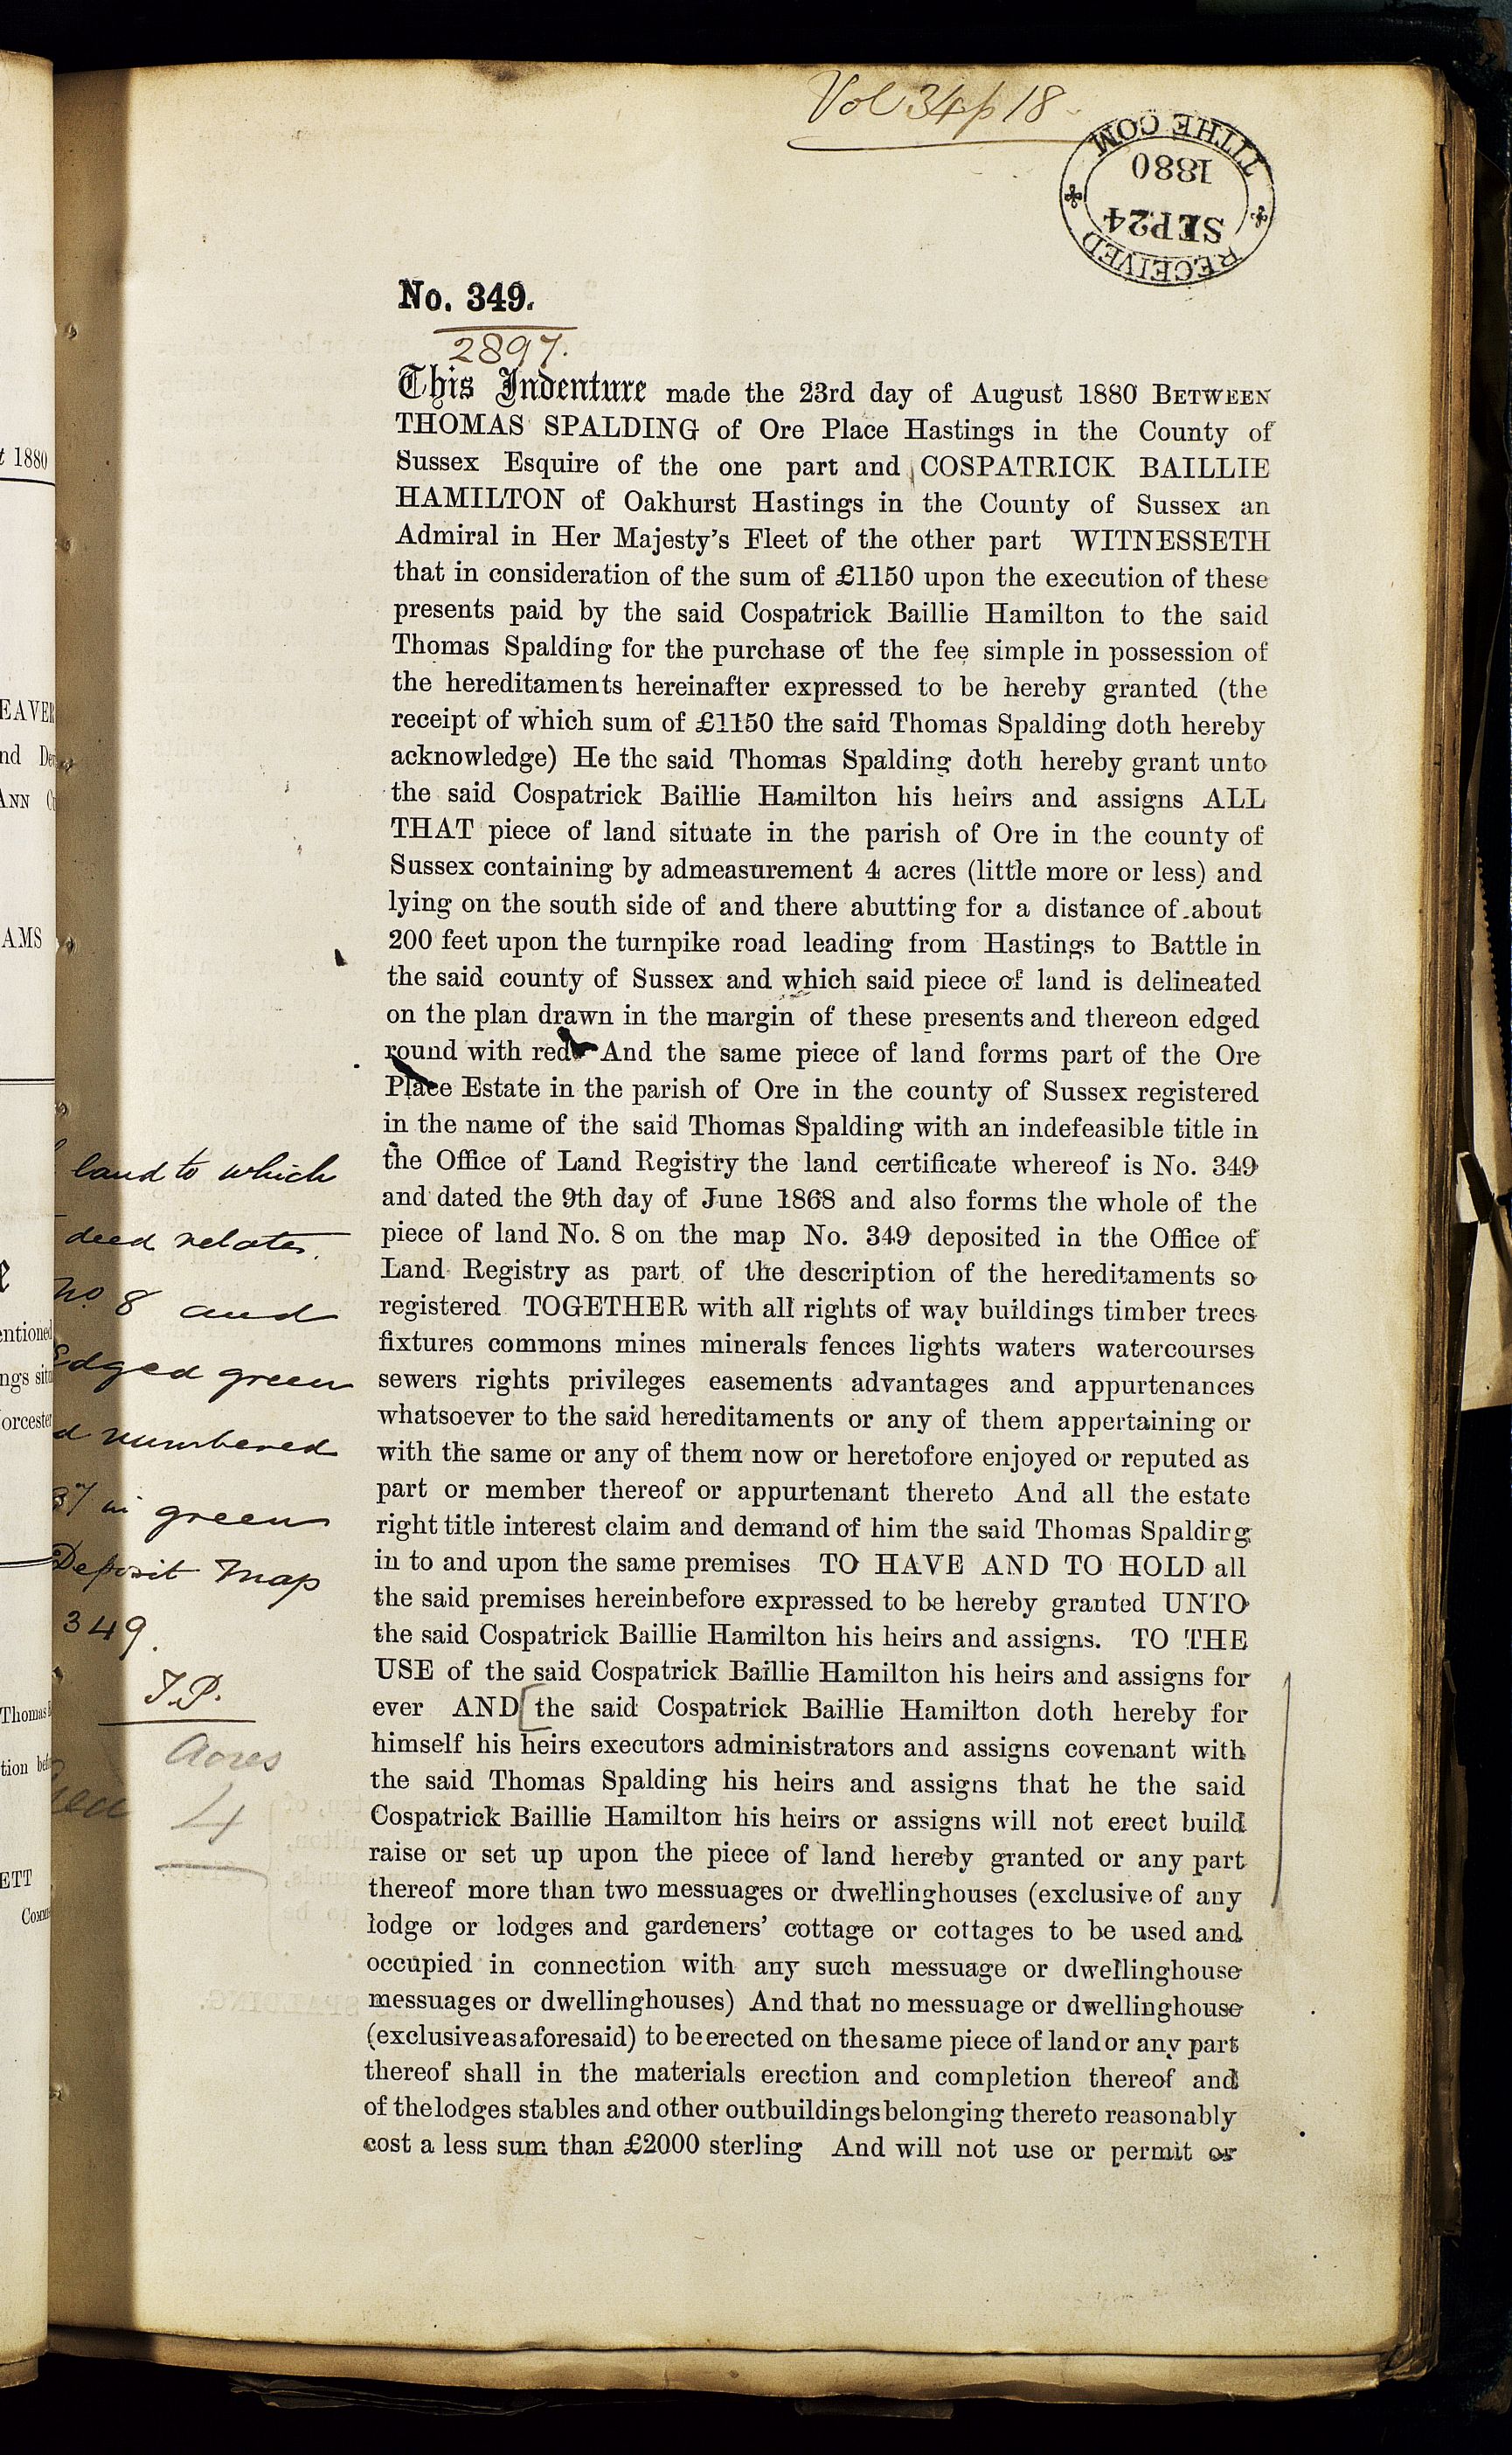 Vol 34 p 18
RECEIVED
SEP 24
1880
TITHE COM
No. 349.
2897.
This Indenture made the 23rd day of August 1880 BETWEEN
THOMAS SPALDING of Ore Place Hastings in the County of
Sussex Esquire of the one part and COSPATRICK BAILLIE
HAMILTON of Oakhurst Hastings in the County of Sussex an
Admiral in Her Majesty's Fleet of the other part WITNESSETH
that in consideration of the sum of £1150 upon the execution of these
presents paid by the said Cospatrick Baillie Hamilton to the said
Thomas Spalding for the purchase of the fee simple in possession of
the hereditaments hereinafter expressed to be hereby granted (the
receipt of which sum of £1150 the said Thomas Spalding doth hereby
acknowledge) He the said Thomas Spalding doth hereby grant unto
the said Cospatrick Baillie Hamilton his heirs and assigns ALL
THAT piece of land situate in the parish of Ore in the county of
Sussex containing by admeasurement 4 acres (little more or less) and
lying on the south side of and there abutting for a distance of about
200 feet upon the turnpike road leading from Hastings to Battle in
the said county of Sussex and which said piece of land is delineated
on the plan drawn in the margin of these presents and thereon edged
round with red And the same piece of land forms part of the Ore
Place Estate in the parish of Ore in the county of Sussex registered
in the name of the said Thomas Spalding with an indefeasible title in
the Office of Land Registry the land certificate whereof is No. 349
and dated the 9th day of June 1868 and also forms the whole of the
piece of land No. 8 on the map No. 349 deposited in the Office of
Land Registry as part of the description of the hereditaments so
registered TOGETHER with all rights of way buildings timber trees
fixtures commons mines minerals fences lights waters watercourses
sewers rights privileges easements advantages and appurtenances
whatsoever to the said hereditaments or any of them appertaining or
with the same or any of them now or heretofore enjoyed or reputed as
part or member thereof or appurtenant thereto And all the estate
right title interest claim and demand of him the said Thomas Spalding
in to and upon the same premises TO HAVE AND TO HOLD all
the said premises hereinbefore expressed to be hereby granted UNTO
the said Cospatrick Baillie Hamilton his heirs and assigns. TO THE
USE of the said Cospatrick Baillie Hamilton his heirs and assigns for
ever AND [the said Cospatrick Baillie Hamilton doth hereby for
himself his heirs executors administrators and assigns covenant with
the said Thomas Spalding his heirs and assigns that he the said
Cospatrick Baillie Hamilton his heirs or assigns will not erect build
raise or set up upon the piece of land hereby granted or any part
thereof more than two messuages or dwellinghouses (exclusive of any
lodge or lodges and gardeners' cottage or cottages to be used and
occupied in connection with any such messuage or dwellinghouse
messuages or dwellinghouses) And that no messuage or dwellinghouse
(exclusive as aforesaid) to be erected on the same piece of land or any part
thereof shall in the materials erection and completion thereof and
of the lodges stables and other outbuildings belonging thereto reasonably
cost a less sum than £2000 sterling And will not use or permit or
land to which
deed relates.
No. 8 and
Edged green
numbered
in green
Deposit Map
349.
T.P.
Acres
4
t 1880
EAVER
nd
ANN
AMS
entioned
ngs
orcester
Thomas
tion
ETT